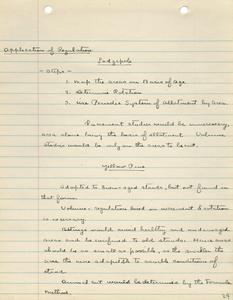 Application of Regulation
Lodgepole
- Steps -
1. Map the areas on Basis of Age
2. Determine Rotation
3. Use Periodic System of Allotment by Area.
Increment studies would be unnecessary,
area alone being the basis of allotment. Volume
studies would be only on the areas to be cut.
Yellow Pine
Adapted to even-aged stands, but not found in
that form.
Volume regulation based on increment & rotation
is necessary.
Attempts would need healthy and undamaged
areas and be confined to old stands. Hence areas
should be as small as possible, as the smaller the
area the more adaptable to variable conditions of
stand.
Annual cut would be determined by the Formula
Method.
29